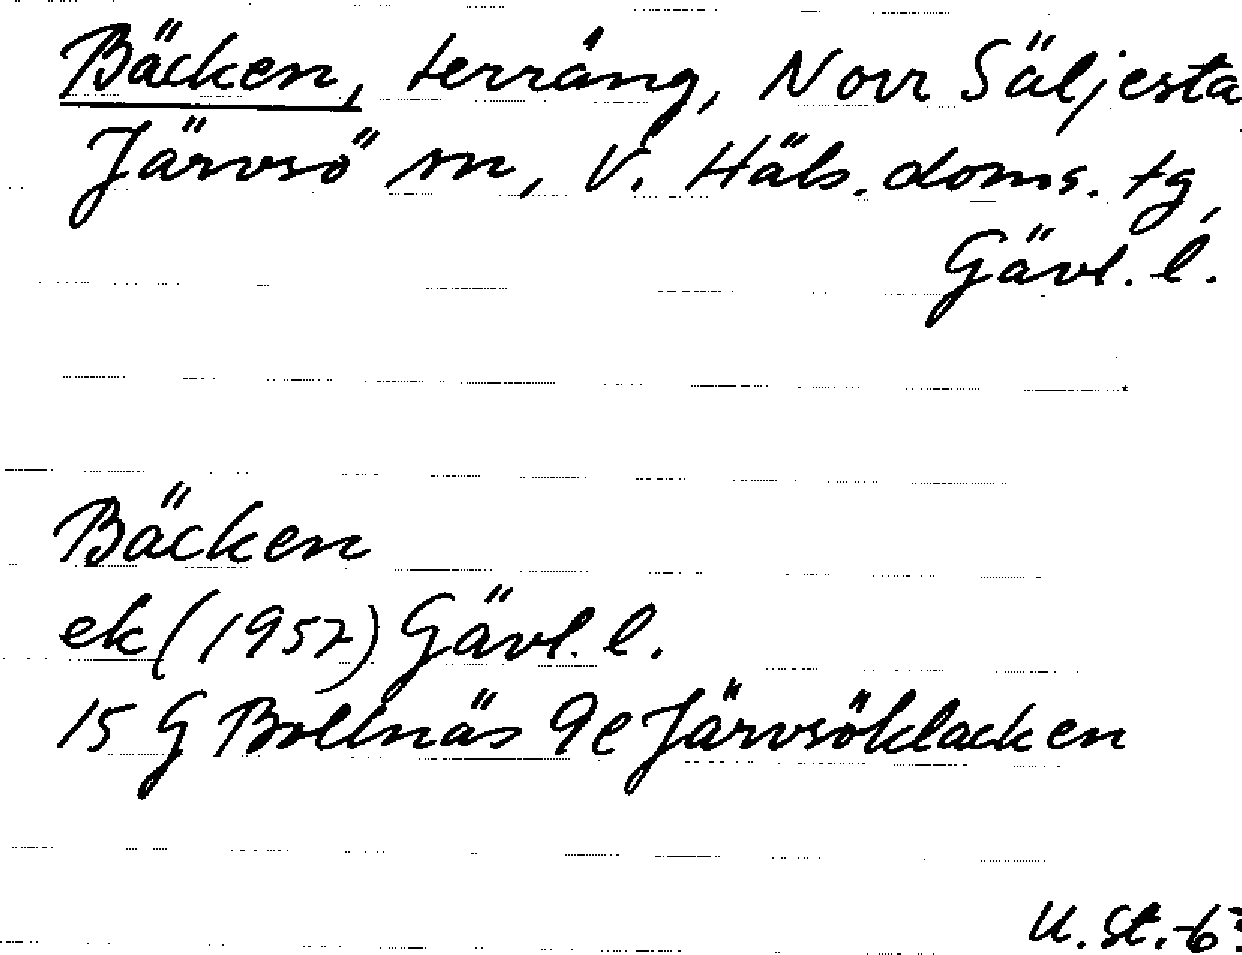 Bäcken, terräng, Norr Säljesta
Järvsö sn, V. Häls. doms. tg,
Gävl. l.
Bäcken
ek (1957) Gävl. l.
15 G Bollnäs 9e Järvsöklacken
U. St.-63